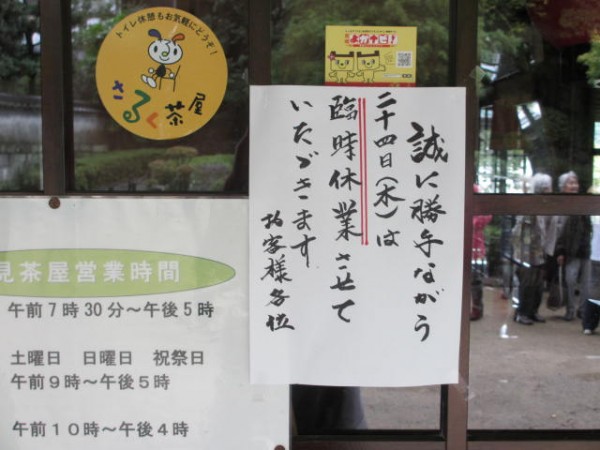 トイレ休憩もお気軽にどうぞ!
さるく茶屋
誠に勝手ながら
二十四日(木)は
臨時休業させて
いただきます
お客様各位
見茶屋営業時間
午前7時30分~午後5時
土曜日 日曜日 祝祭日
午前9時~午後5時
午前10時~午後4時